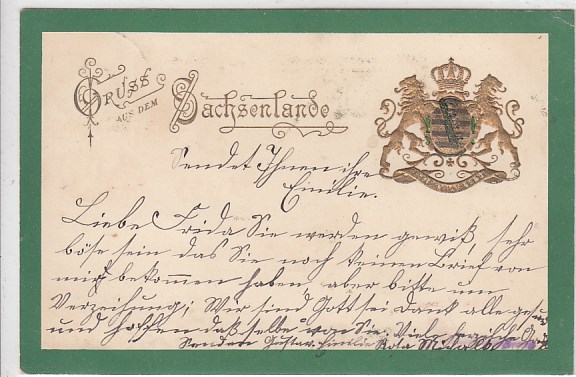 Gruss
aus dem
Sachsenlande
Sendet Ihnen ihre
Emilie.
Liebe Frida Sie werden gewiß sehr
böse sein das Sie noch keinen Brief von
mir bekommen haben, aber bitte um
Verzeihung; Wir sind Gott sei dank alle gesund
und hoffen daßelbe von Sie. Viele
Senden Gustav. Emilie